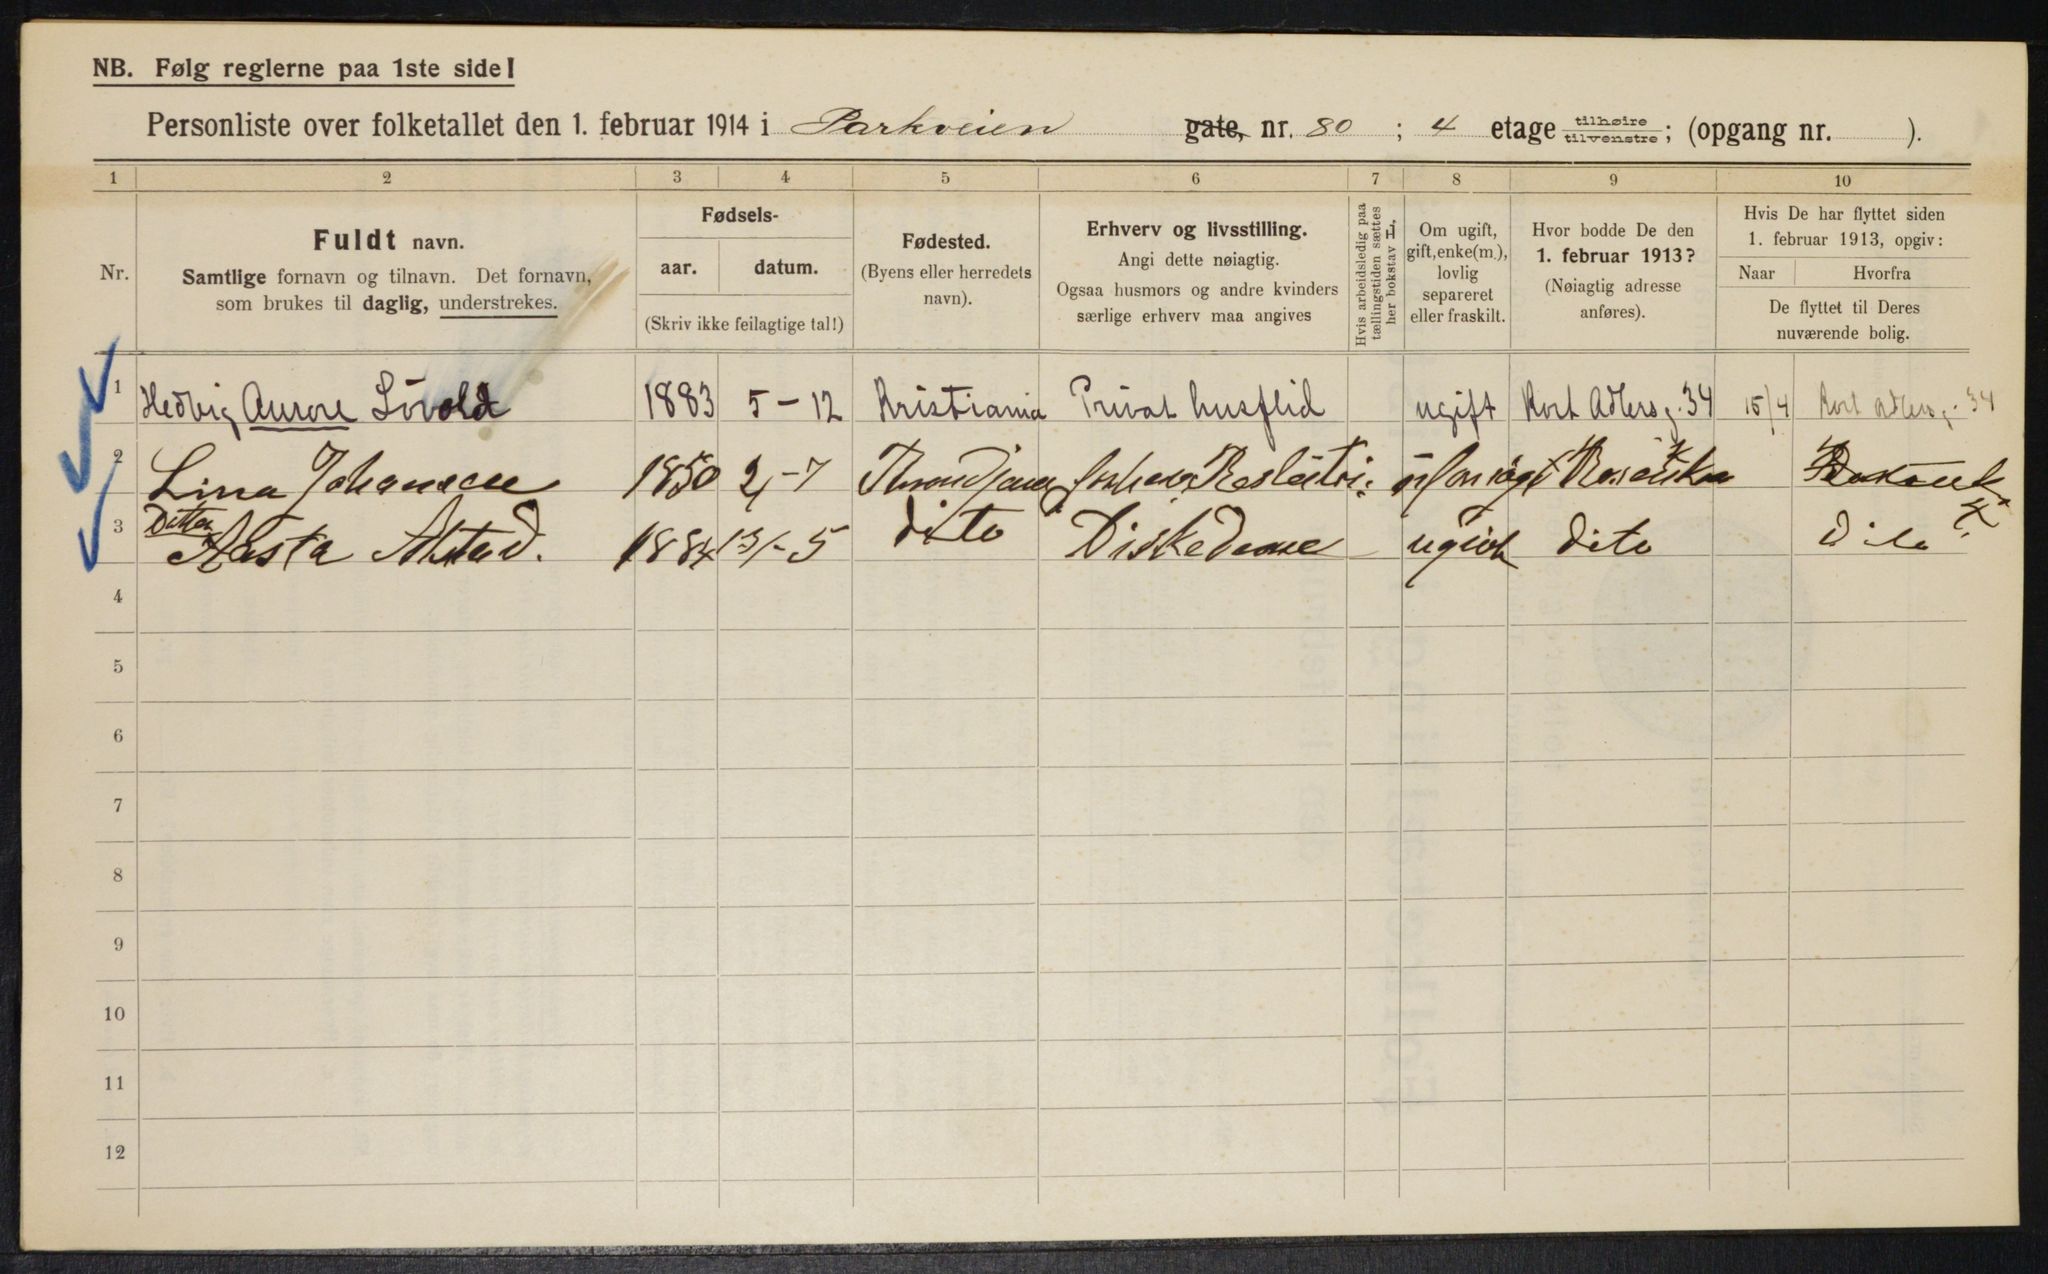 NB. Følg reglerne paa 1ste side!
Personliste over folketallet den 1. februar 1914 i Parkveien gate, nr. 80 ; 4 etage tilhøire tilvenstre ; (opgang nr. ).
1 2 3 4 5 6 7 8 9 10
Nr.
Fuldt navn.
Samtlige fornavn og tilnavn. Det fornavn,
som brukes til daglig, understrekes.
Fødsels-
aar. datum.
(Skriv ikke feilagtige tal!)
Fødested.
(Byens eller herredets
navn).
Erhverv og livsstilling.
Angi dette nøiagtig.
Ogsaa husmors og andre kvinders
særlige erhverv maa angives
Hvis arbeidsledig paa
tællingstiden sættes
her bokstav L,
Om ugift,
gift, enke(m.),
lovlig
separeret
eller fraskilt.
Hvor bodde De den
1. februar 1913?
(Nøiagtig adresse
anføres).
Hvis De har flyttet siden
1. februar 1913, opgiv:
Naar Hvorfra
De flyttet til Deres
nuværende bolig.
1 Hedvig Aurore Lövold 1883 5-12 Kristiania Privat husflid ugift Kort Adlersg. 34 15/4 Kort Adlersg. 34
2 Lina Johansen 1850 2-7
3 Datter Aasta Alstad. 1884 13-5 dito Diskedame ugift dito Dito
4
5
6
7
8
9
10
11
12